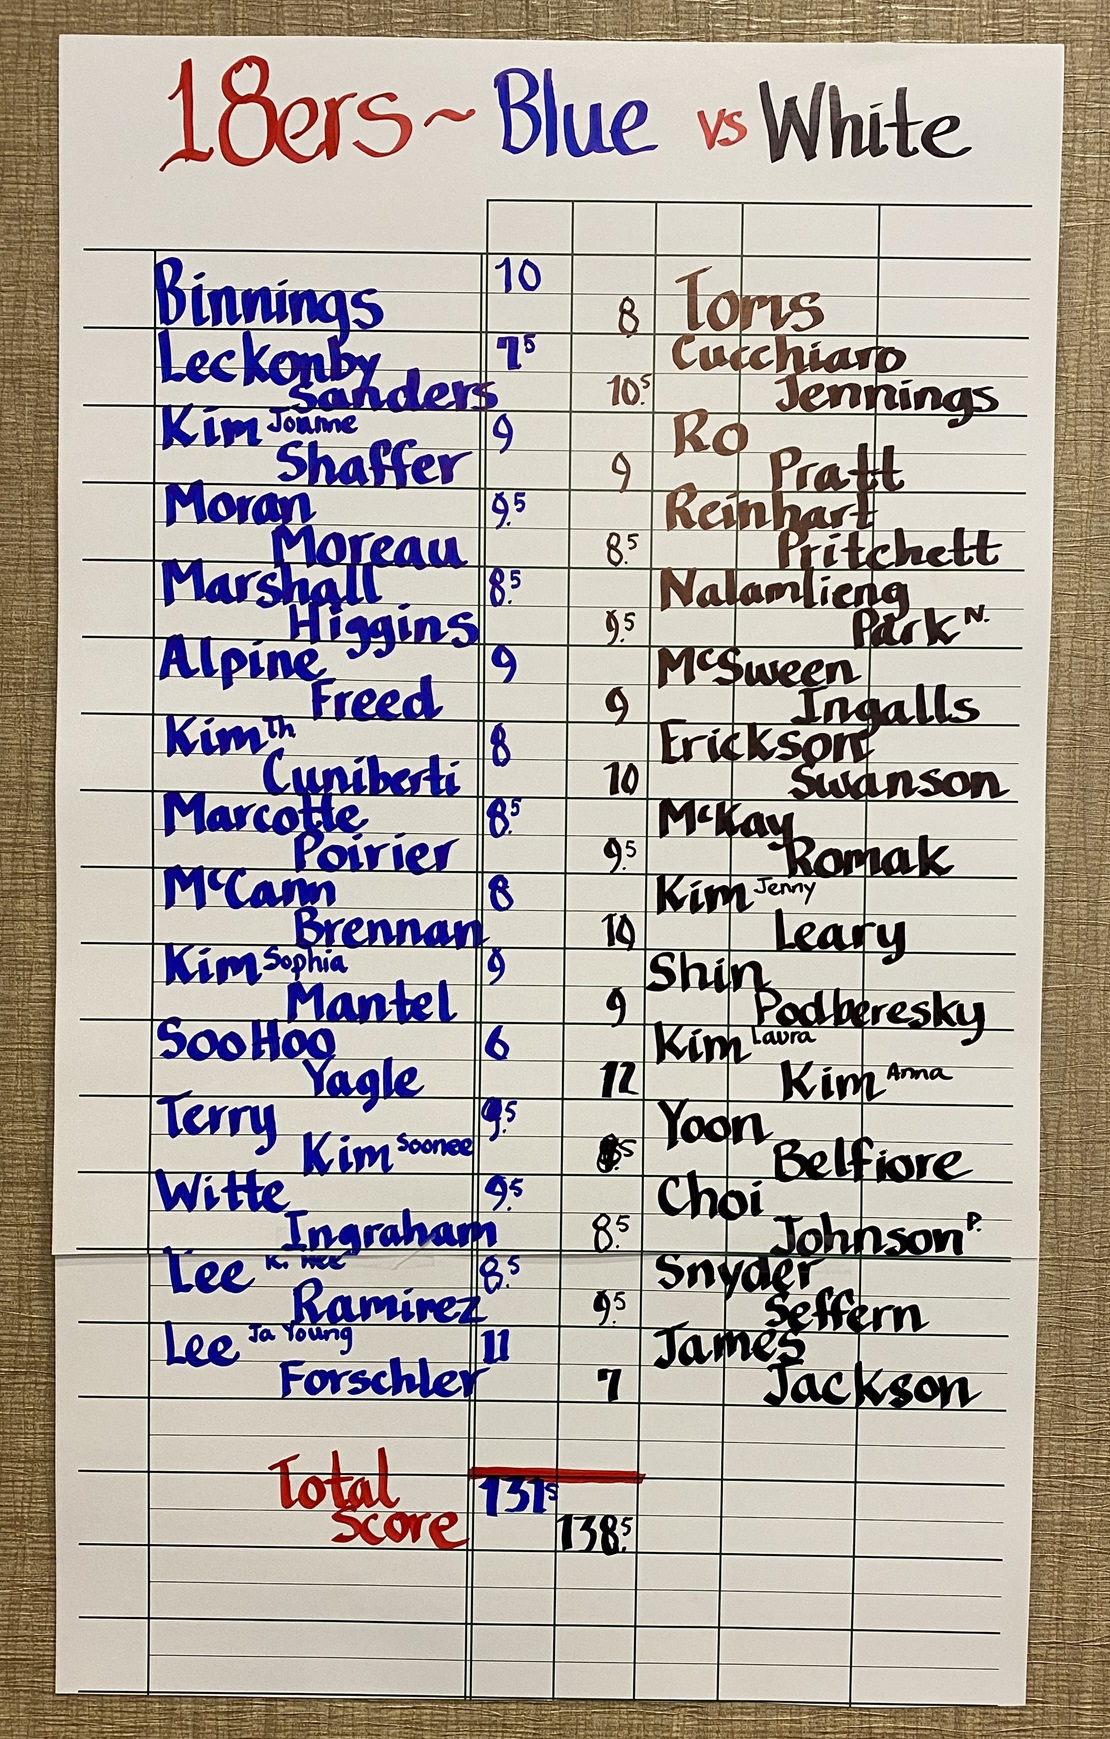 18ers ~ Blue vs White
Binnings 10
8 Toms
Leckonby 7.5 Cucchiaro
Sanders 10.5 Jennings
Kim Joanne 9 Ro
Shaffer 9 Pratt
Moran 9.5 Reinhart
Moreau 8.5 Pritchett
Marshall 8.5 Nalamlieng
Higgins 9.5 Park N.
Alpine 9 McSween
Freed 9 Ingalls
Kim Th 8 Erickson
Cuniberti 10 Swanson
Marcotte 8.5 McKay
Poirier 9.5 Romak
McCann 8 Kim Jenny
Brennan 10 Leary
Kim Sophia 9 Shin
Mantel 9 Podberesky
SooHoo 6 Kim Laura
Yagle 12 Kim Anna
Terry 9.5 Yoon
Kim Soonee 8.5 Belfiore
Witte 9.5 Choi
Ingraham 8.5 Johnson P.
Lee K. Hee 8.5 Snyder
Ramirez 9.5 Seffern
Lee Ja Young 11 James
Forschler 7 Jackson
Total 131.5
Score 138.5